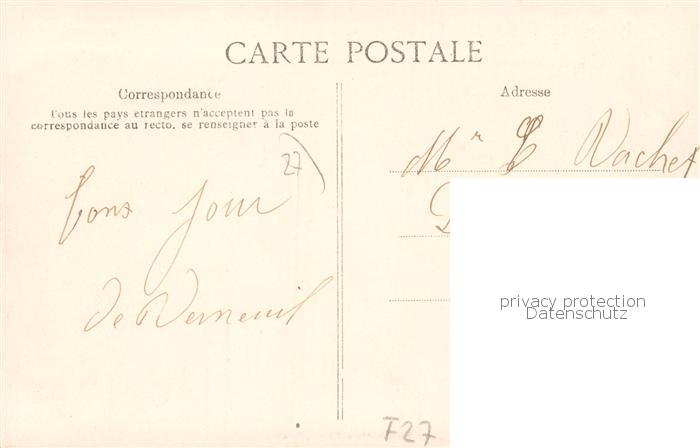 CARTE POSTALE
Correspondance
Tous les pays etrangers n'acceptent pas la
correspondance au recto, se renseigner à la poste
27
bons jour
de Verneuil
Adresse
Mr L Vachet
privacy protection
Datenschutz
F27